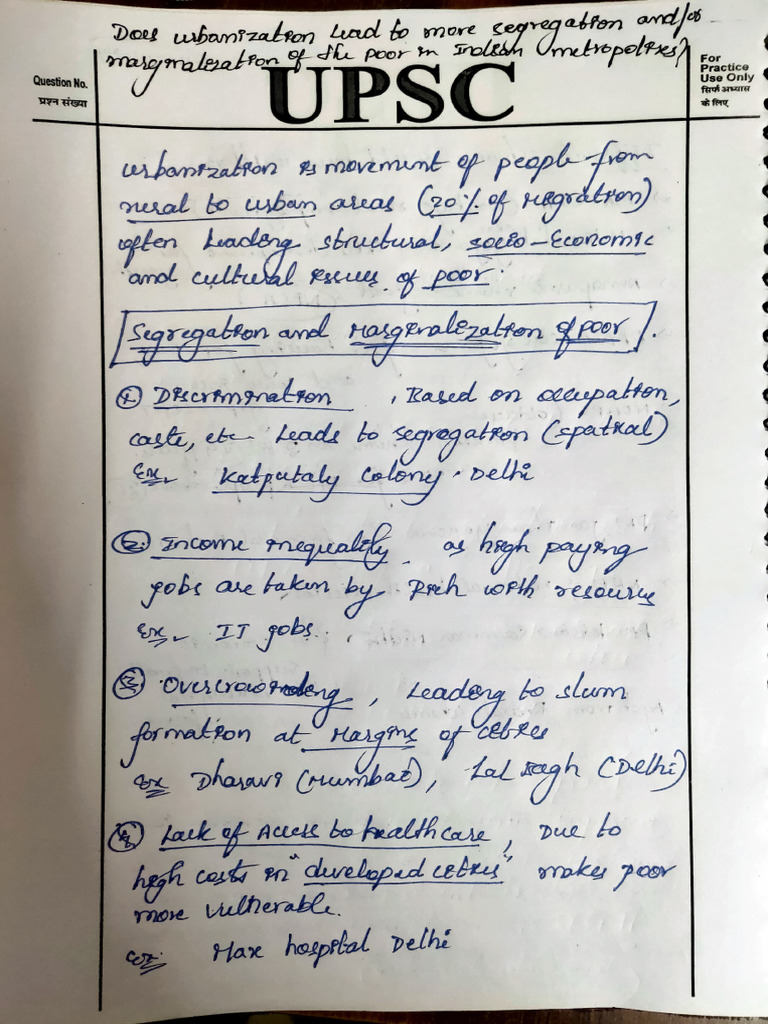 Does urbanization lead to more segregation and/or
marginalization of the poor in Indian metropolises?
Question No.
प्रश्न संख्या
UPSC
For
Practice
Use Only
सिर्फ अभ्यास
के लिए
urbanization is movement of people from
rural to urban areas (20% of Migration)
often leading structural, socio-Economic
and cultural issues of poor.
Segregation and Marginalization of poor.
① Discrimination, Based on occupation,
caste, etc leads to segregation (spatial)
Ex. Katputaly Colony. Delhi
② Income inequality, as high paying
jobs are taken by Rich with resources
Ex. IT jobs.
③ Overcrowding, leading to slum
formation at Margins of cities
Ex Dharavi (Mumbai), Lal Bagh (Delhi)
④ Lack of Access to healthcare, Due to
high costs in "developed cities" makes poor
more vulnerable.
Ex. Max hospital Delhi